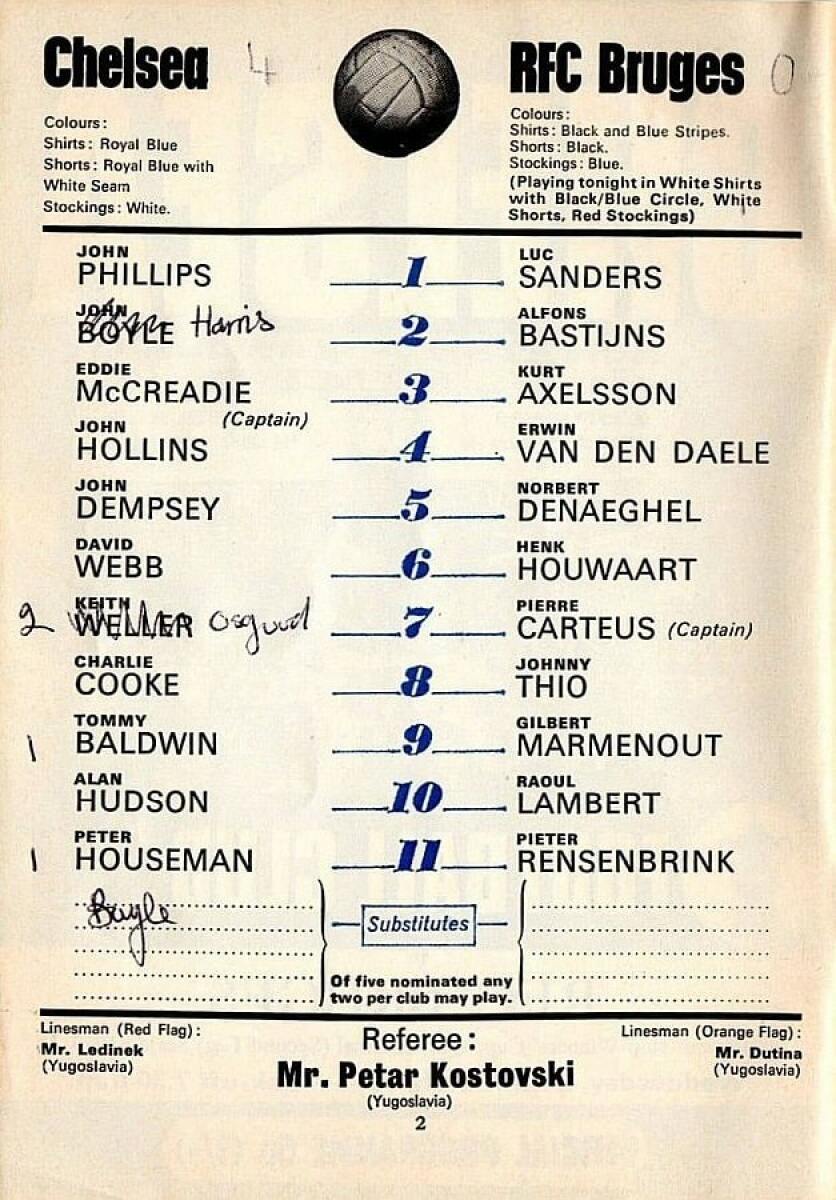 Chelsea 4
Colours:
Shirts: Royal Blue
Shorts: Royal Blue with
White Seam
Stockings: White.
RFC Bruges 0
Colours:
Shirts: Black and Blue Stripes.
Shorts: Black.
Stockings: Blue.
(Playing tonight in White Shirts
with Black/Blue Circle, White
Shorts, Red Stockings)
JOHN
PHILLIPS 1 LUC
SANDERS
JOHN
BOYLE Harris 2 ALFONS
BASTIJNS
EDDIE
McCREADIE 3 KURT
AXELSSON
(Captain)
JOHN
HOLLINS 4 ERWIN
VAN DEN DAELE
JOHN
DEMPSEY 5 NORBERT
DENAEGHEL
DAVID
WEBB 6 HENK
HOUWAART
KEITH
2 WELLER Osgood 7 PIERRE
CARTEUS (Captain)
CHARLIE
COOKE 8 JOHNNY
THIO
TOMMY
1 BALDWIN 9 GILBERT
MARMENOUT
ALAN
HUDSON 10 RAOUL
LAMBERT
PETER
1 HOUSEMAN 11 PIETER
RENSENBRINK
Boyle
Substitutes
Of five nominated any
two per club may play.
Linesman (Red Flag):
Mr. Ledinek
(Yugoslavia)
Referee:
Mr. Petar Kostovski
(Yugoslavia)
Linesman (Orange Flag):
Mr. Dutina
(Yugoslavia)
2